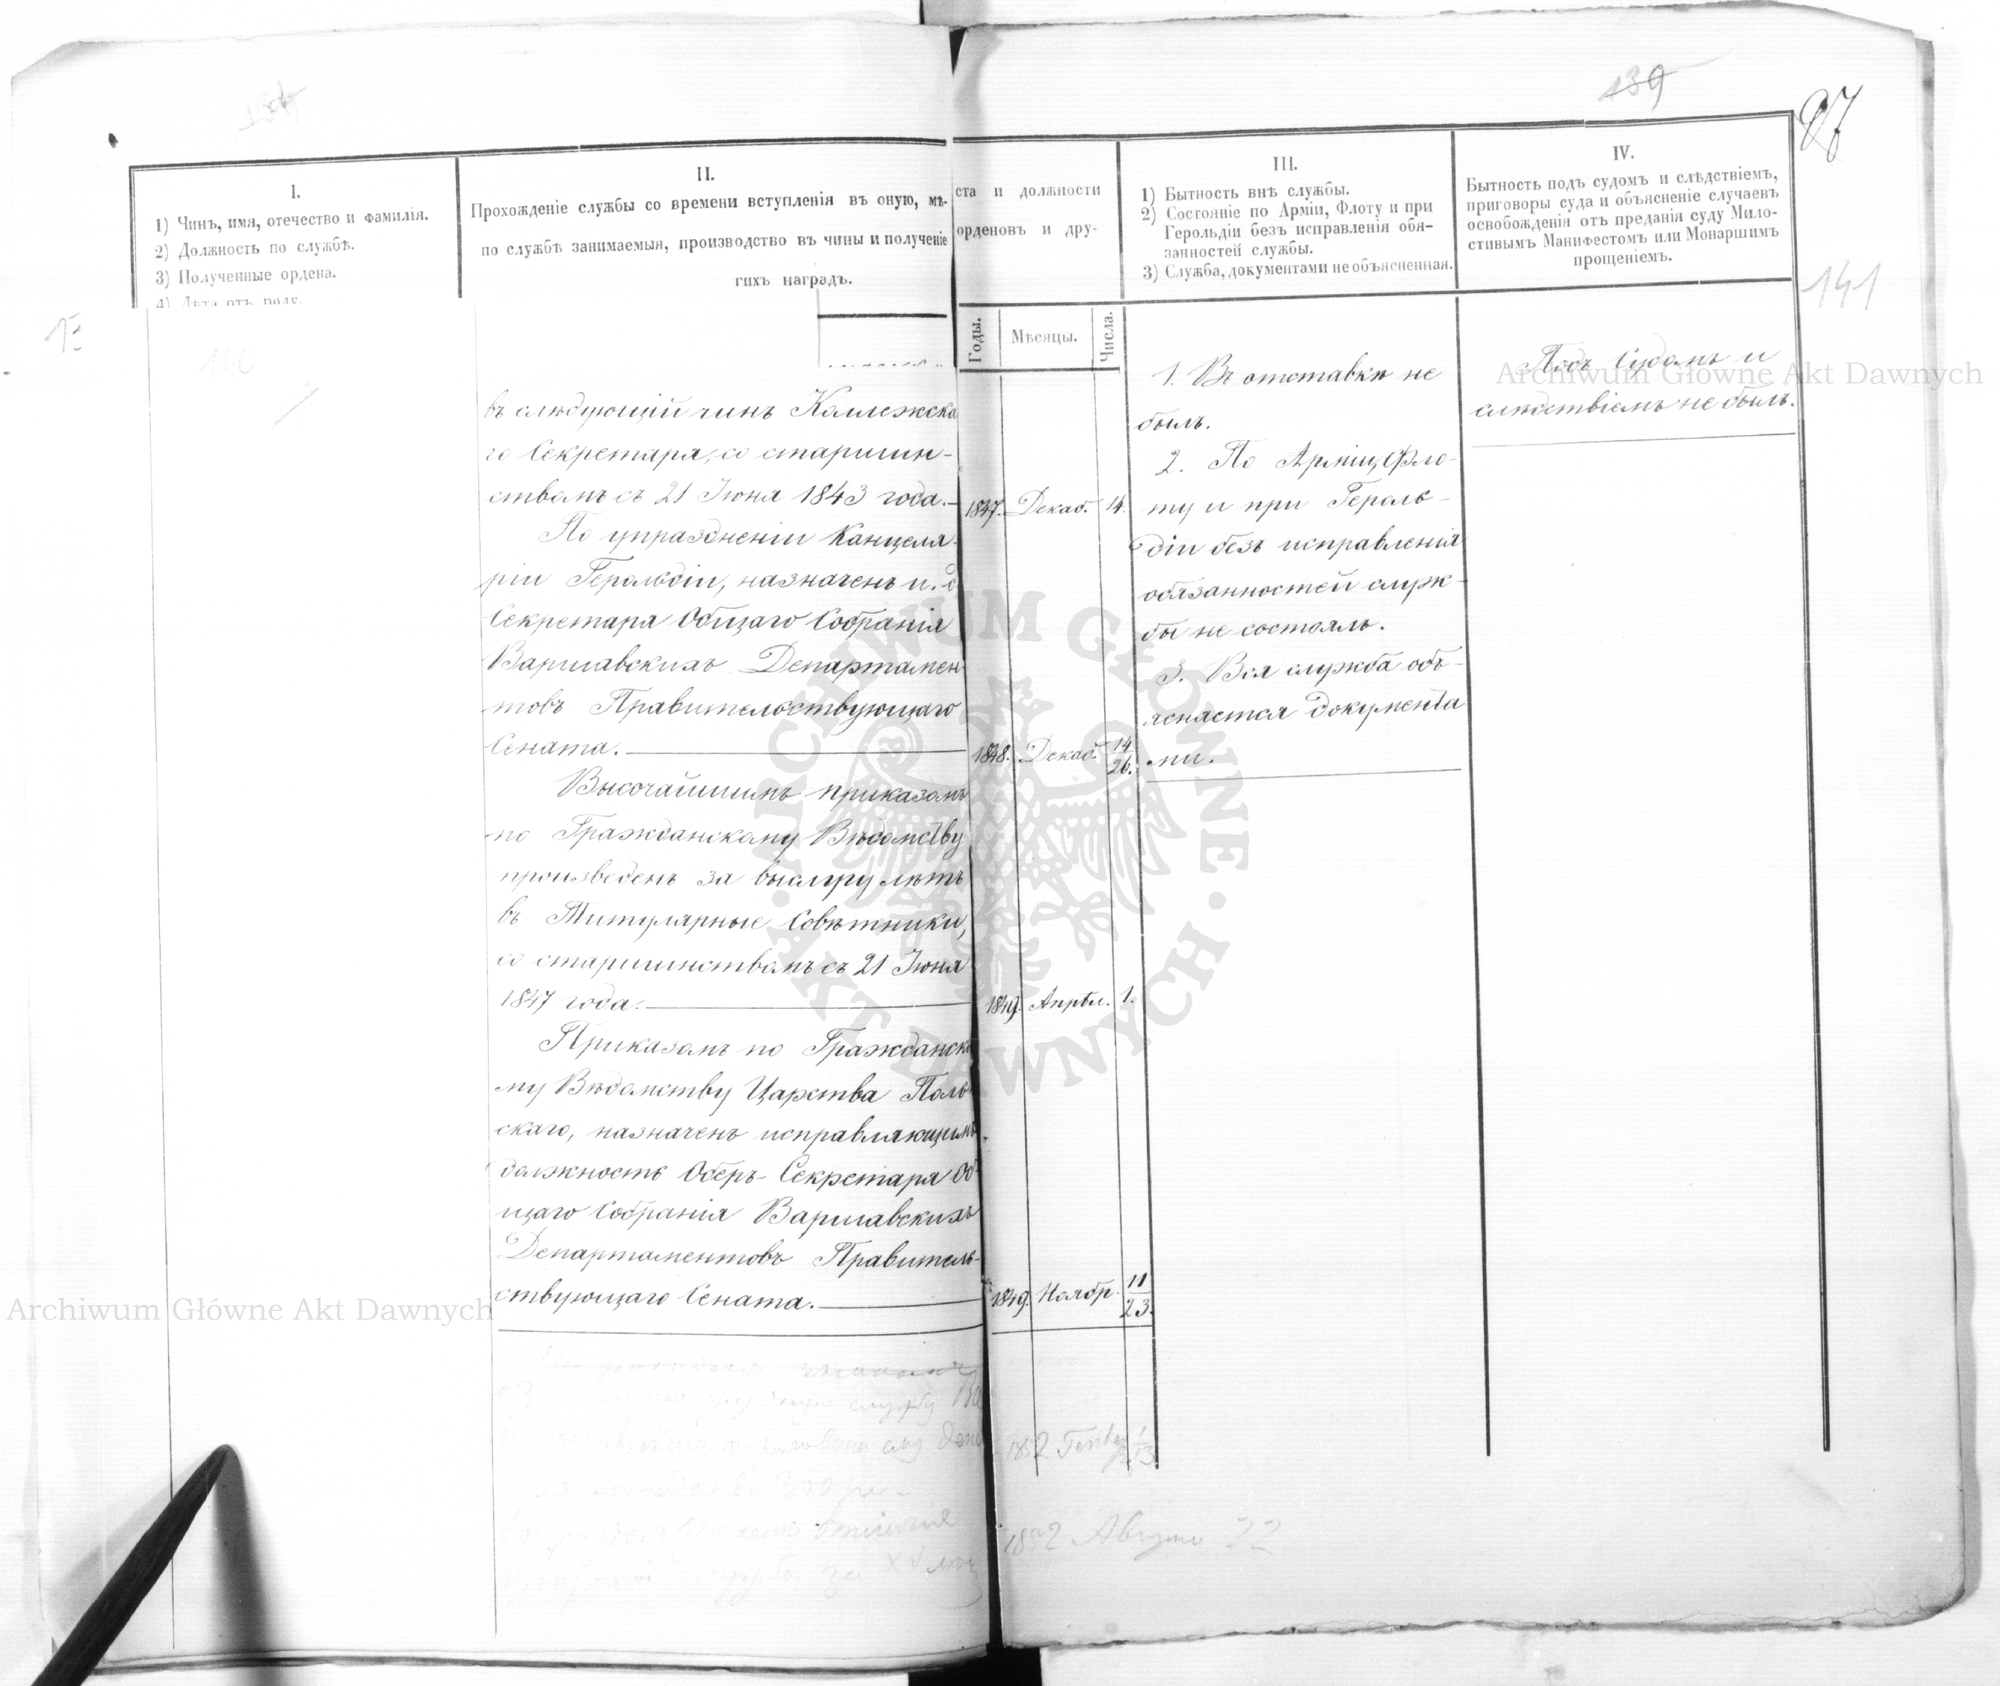 139
97
141
140
I.
1) Чинъ, имя, отечество и фамилія.
2) Должность по службѣ.
3) Полученные ордена.
4) Лѣта отъ роду.
II.
Прохожденіе службы со времени вступленія въ оную, мѣ-
ста и должности
по службѣ занимаемыя, производство въ чины и полученіе
орденовъ и дру-
гихъ наградъ.
Годы.
Мѣсяцы.
Числа.
III.
1) Бытность внѣ службы.
2) Состояніе по Арміи, Флоту и при
Герольдіи безъ исправленія обя-
занностей службы.
3) Служба, документами не объясненная.
IV.
Бытность подъ судомъ и слѣдствіемъ,
приговоры суда и объясненіе случаевъ
освобожденія отъ преданія суду Мило-
стивымъ Манифестомъ или Монаршимъ
прощеніемъ.
въ слѣдующій чинъ Коллежска
го Секретаря, со старшин-
ствомъ съ 21 Іюня 1843 года.
1847. Декаб. 14.
По упраздненіи Канцеля-
ріи Герольдіи, назначенъ и. д.
Секретаря Общаго Собранія
Варшавскихъ Департамен-
товъ Правительствующаго
Сената.
1848. Декаб. 14/26.
Высочайшимъ приказомъ
по Гражданскому Вѣдомству
произведенъ за выслугу лѣтъ
въ Титулярные Совѣтники,
со старшинствомъ съ 21 Іюня
1847 года.
1849. Апрѣл. 1.
Приказомъ по Гражданско
му Вѣдомству Царства Поль
скаго, назначенъ исправляющимъ
должность Оберъ-Секретаря Об-
щаго Собранія Варшавскихъ
Департаментовъ Правитель-
ствующаго Сената.
1849. Ноябр. 11/23.
службу
въ 300
1852 1/13
1852 Августа 22
службы за XV лѣтъ
1. Въ отставкѣ не
былъ.
2. По Арміи, Фло-
ту и при Героль-
діи безъ исправленія
обязанностей служ-
бы не состоялъ.
3. Вся служба объ-
ясняется документа
ми.
Подъ Судомъ и
слѣдствіемъ не былъ.
Archiwum Główne Akt Dawnych
Archiwum Główne Akt Dawnych
ARCHIWUM GŁÓWNE · AKT DAWNYCH ·